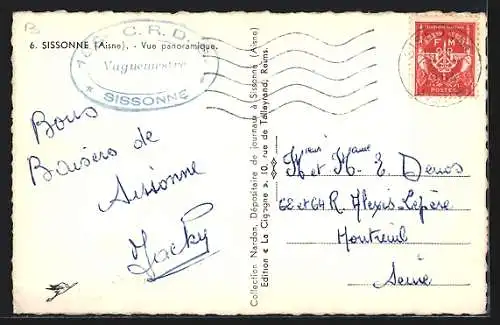 B
6. SISSONNE (Aisne). - Vue panoramique.
C. R. D.
Vaguemestre
* SISSONNE *
F M
POSTES
Bons
Baisers de
Sissonne
Jacky
Collection Nardon, Dépositaire de journaux à Sissonne (Aisne)
Edition « La Cigogne », 10, rue de Talleyrand, Reims.
Mr et Mme E Denos
62 et 64 R. Alexis Lepère
Montreuil
Seine